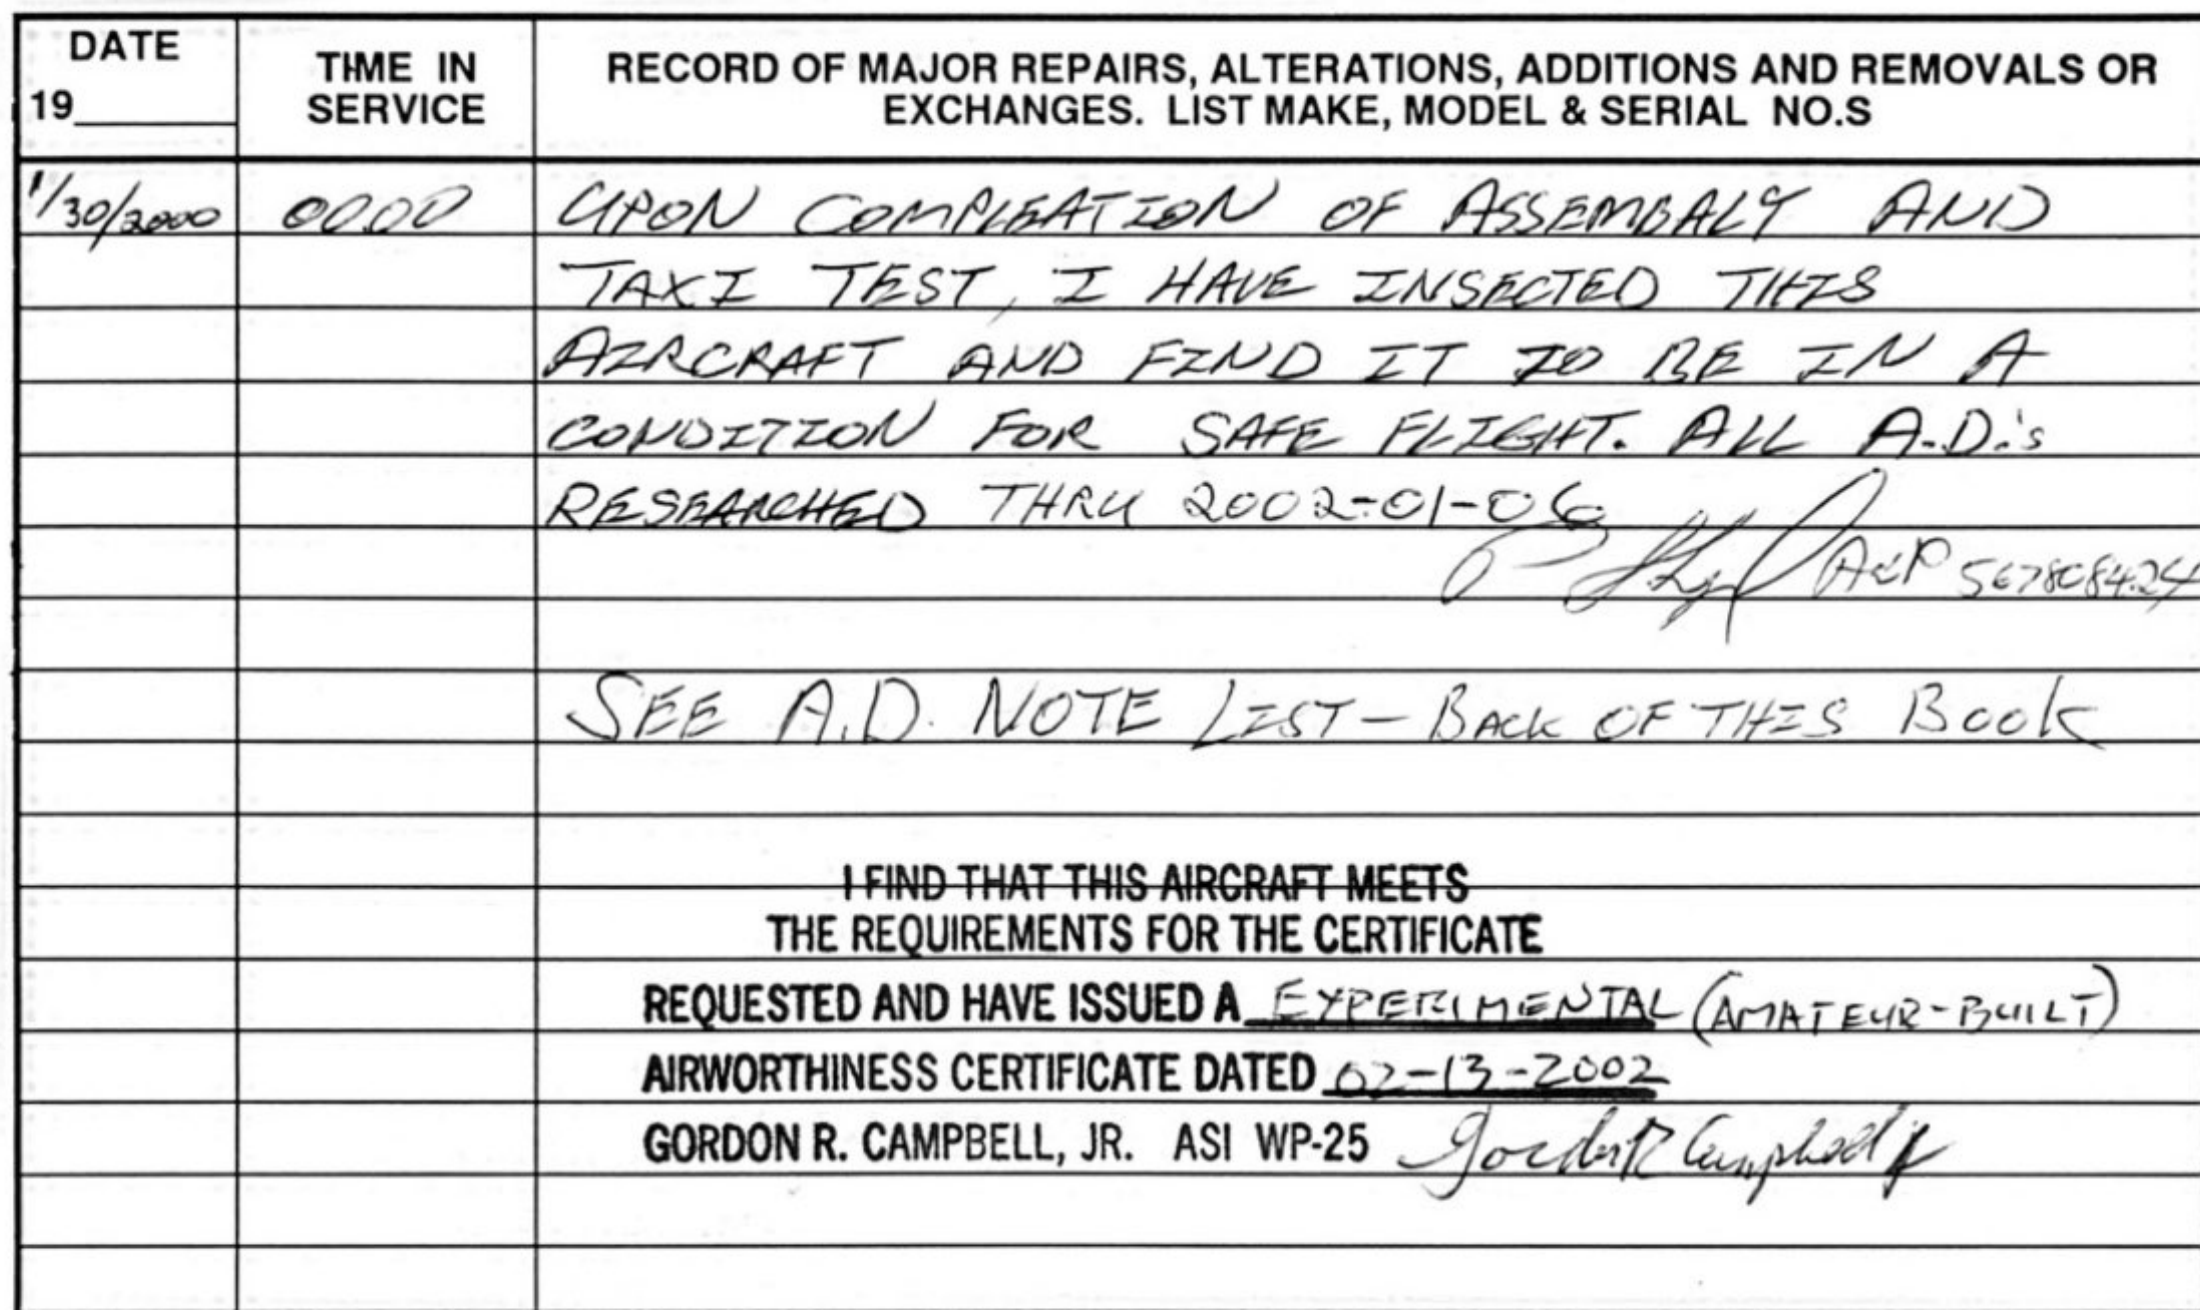 DATE
19____
TIME IN
SERVICE
RECORD OF MAJOR REPAIRS, ALTERATIONS, ADDITIONS AND REMOVALS OR
EXCHANGES. LIST MAKE, MODEL & SERIAL NO.S
1/30/2000 0000 UPON COMPLEATION OF ASSEMBALY AND
TAXI TEST, I HAVE INSECTED THIS
AIRCRAFT AND FIND IT TO BE IN A
CONDITION FOR SAFE FLIGHT. ALL A.D.'s
RESEARCHED THRU 2002-01-06
A&P
SEE A.D. NOTE LIST - BACK OF THIS BOOK
I FIND THAT THIS AIRCRAFT MEETS
THE REQUIREMENTS FOR THE CERTIFICATE
REQUESTED AND HAVE ISSUED A EXPERIMENTAL (AMATEUR-BUILT)
AIRWORTHINESS CERTIFICATE DATED 02-13-2002
GORDON R. CAMPBELL, JR. ASI WP-25 Gordon R Campbell Jr